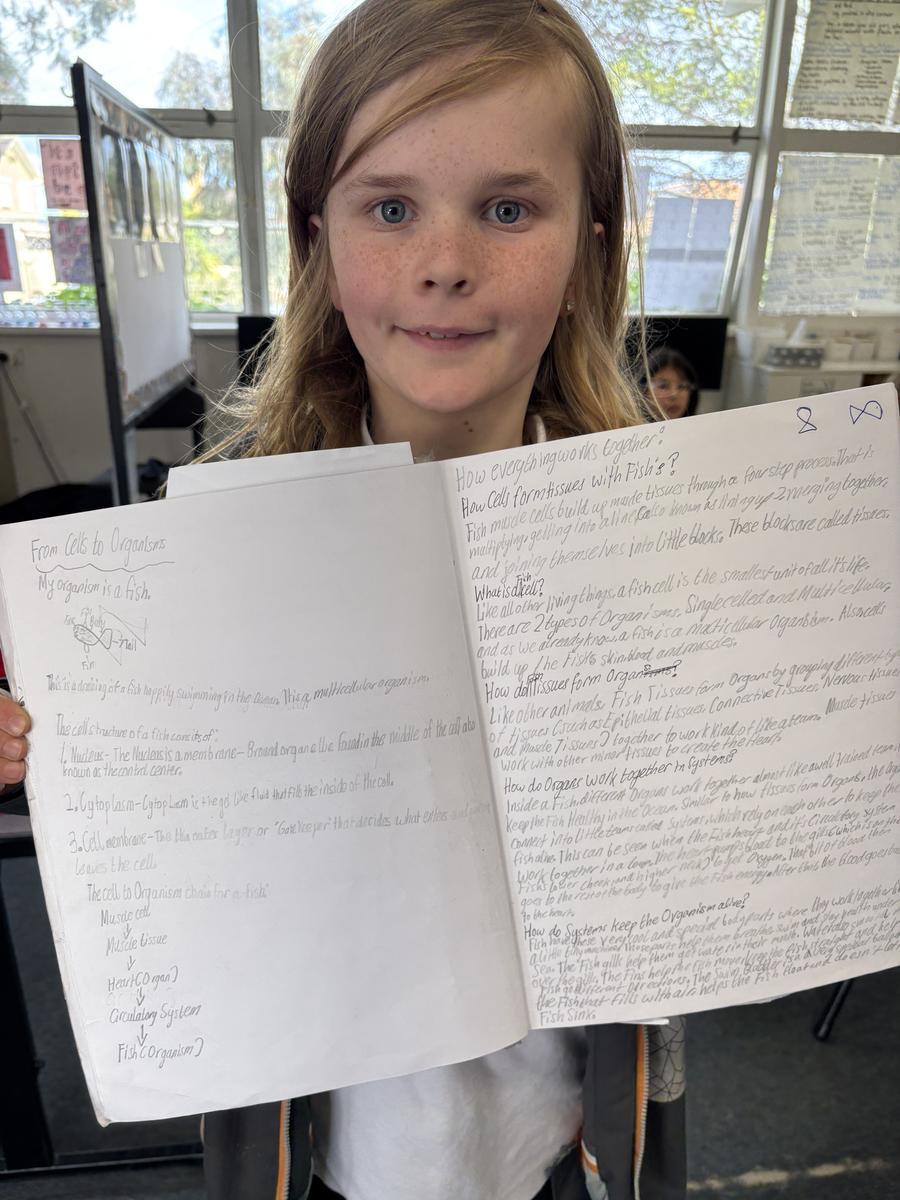 It's
not
be
From Cells to Organisms
My organism is a fish.
Body
Tail
Fin
This is a drawing of a fish happily swimming in the Ocean. This is a multicellular organism.
The cell structure of a fish consists of:
1. Nucleus - The Nucleus is a membrane - Bround organelle found in the middle of the cell also
known as the control center.
2. Cytoplasm - Cytoplasm is the gel like fluid that fills the inside of the cell.
3. Cell membrane - The thin outer layer or "Gate keeper" that decides what enters and
leaves the cell.
The cell to Organism chain for a fish:
Muscle cell
↓
Muscle tissue
↓
Heart (Organ)
↓
Circulatory System
↓
Fish (Organism)
How everything works together:
How Cells form tissues with Fish's?
Fish muscle cells build up muscle tissues through a four step process. That is
multiplying, getting into a line, (also known as lining up) merging together,
and joining themselves into little blocks. These blocks are called tissues.
What is a Fish cell?
Like all other living things, a fish cell is the smallest unit of all it's life.
There are 2 types of Organisms, Single celled and Multicellular,
and as we already know, a fish is a multicellular Organism. Also cells
build up the Fish's skin, blood and muscles.
How do Tissues form Organs?
Like other animals, Fish Tissues form Organs by grouping different types
of tissues (such as Epithelial tissues, Connective Tissues, Nervous tissues
and muscle Tissues) together to work kind of like a team. Muscle tissues
work with other minor tissues to create the Heart.
How do Organs work together in Systems?
Inside a Fish, different Organs work together almost like a well trained team
keep the Fish Healthy in the Ocean. Similar to how tissues form Organs, the Organs
connect into little teams called systems, which rely on each other to keep the
fish alive. This can be seen when the Fish heart and it's circulatory system
work together in a loop. The heart pumps blood to the gills, which is on the
Fish's lower cheek and higher neck) to get Oxygen. That blood then
goes to the rest of the body to give the Fish energy. After that the blood goes back
to the heart.
How do Systems keep the Organism alive?
Fish have these very cool and special body parts where they work together like
a little machine. Those parts help them breathe, swim and stay under
Sea. The Fish gills help them get water in their mouth. Water also
over the gills. The Fins help the Fish move, keep the Fish steady and help
Fish go different directions. The Swim Bladder is a very special
the Fish that fills with air, helps the Fish float and doesn't let
Fish Sink.